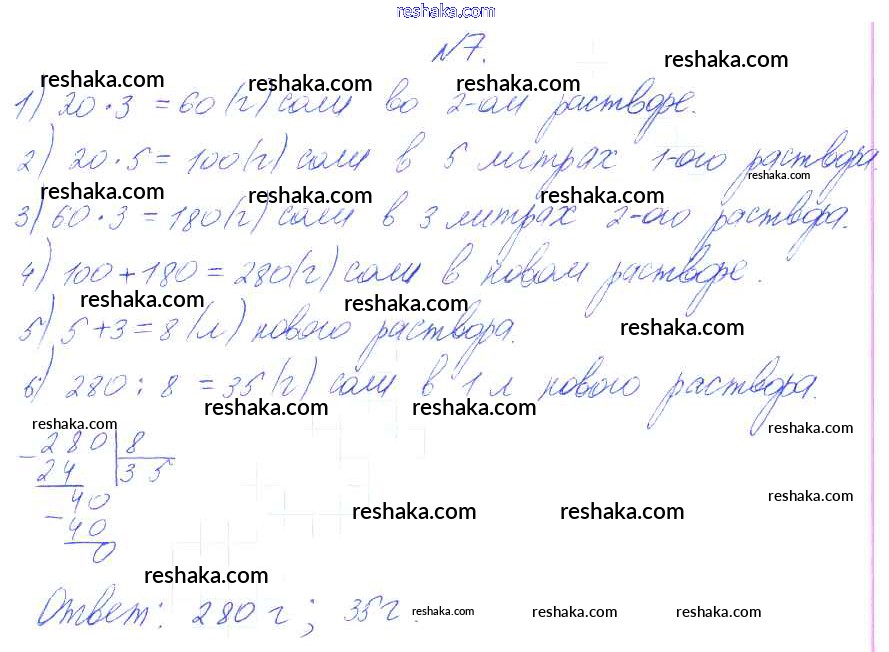 reshaka.com
N7.
reshaka.com
reshaka.com reshaka.com reshaka.com
1) 20·3 = 60 (г) соли во 2-ом растворе.
2) 20·5 = 100 (г) соли в 5 литрах 1-ого раствора.
reshaka.com
reshaka.com reshaka.com reshaka.com
3) 60·3 = 180 (г) соли в 3 литрах 2-ого раствора.
4) 100 + 180 = 280 (г) соли в новом растворе.
reshaka.com reshaka.com
5) 5 + 3 = 8 (л) нового раствора.
reshaka.com
6) 280 : 8 = 35 (г) соли в 1 л нового раствора.
reshaka.com reshaka.com
reshaka.com reshaka.com
- 280 | 8
24 | 35
reshaka.com
40
reshaka.com reshaka.com
- 40
0
reshaka.com
Ответ: 280 г; 35 г.
reshaka.com reshaka.com reshaka.com